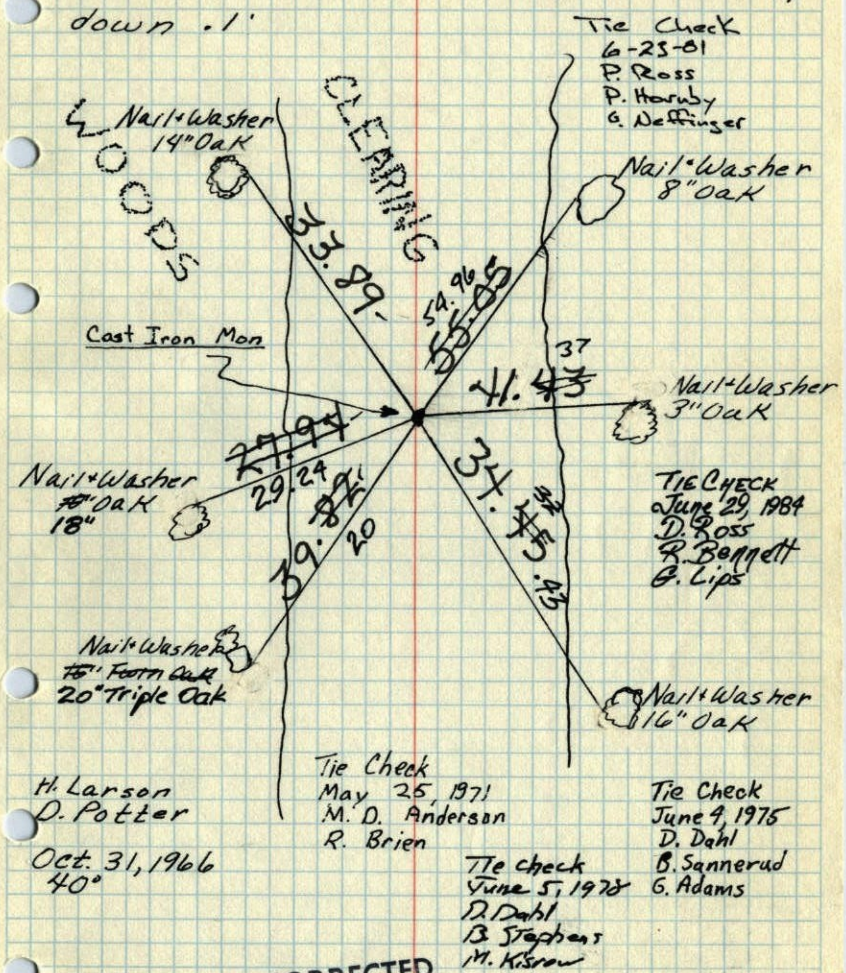 down .1'
Tie Check
6-23-81
P. Ross
P. Hornby
G. Neffinger
WOODS
CLEARING
Nail+Washer
14" Oak
Nail+Washer
8" Oak
33.89
54.96
55.05
Cast Iron Mon
37
41.43
Nail+Washer
3" Oak
27.94
29.24
Nail+Washer
Oak
18"
39.82'
20
34.45
32
.43
TIE CHECK
June 29, 1984
D. Ross
R. Bennett
G. Lips
Nail+Washer
20" Triple Oak
Nail+Washer
16" Oak
H. Larson
D. Potter
Oct. 31, 1966
40°
Tie Check
May 25, 1971
M. D. Anderson
R. Brien
Tie Check
June 4, 1975
D. Dahl
B. Sannerud
G. Adams
Tie check
June 5, 1978
D. Dahl
B. Stephens
M. Kisrow